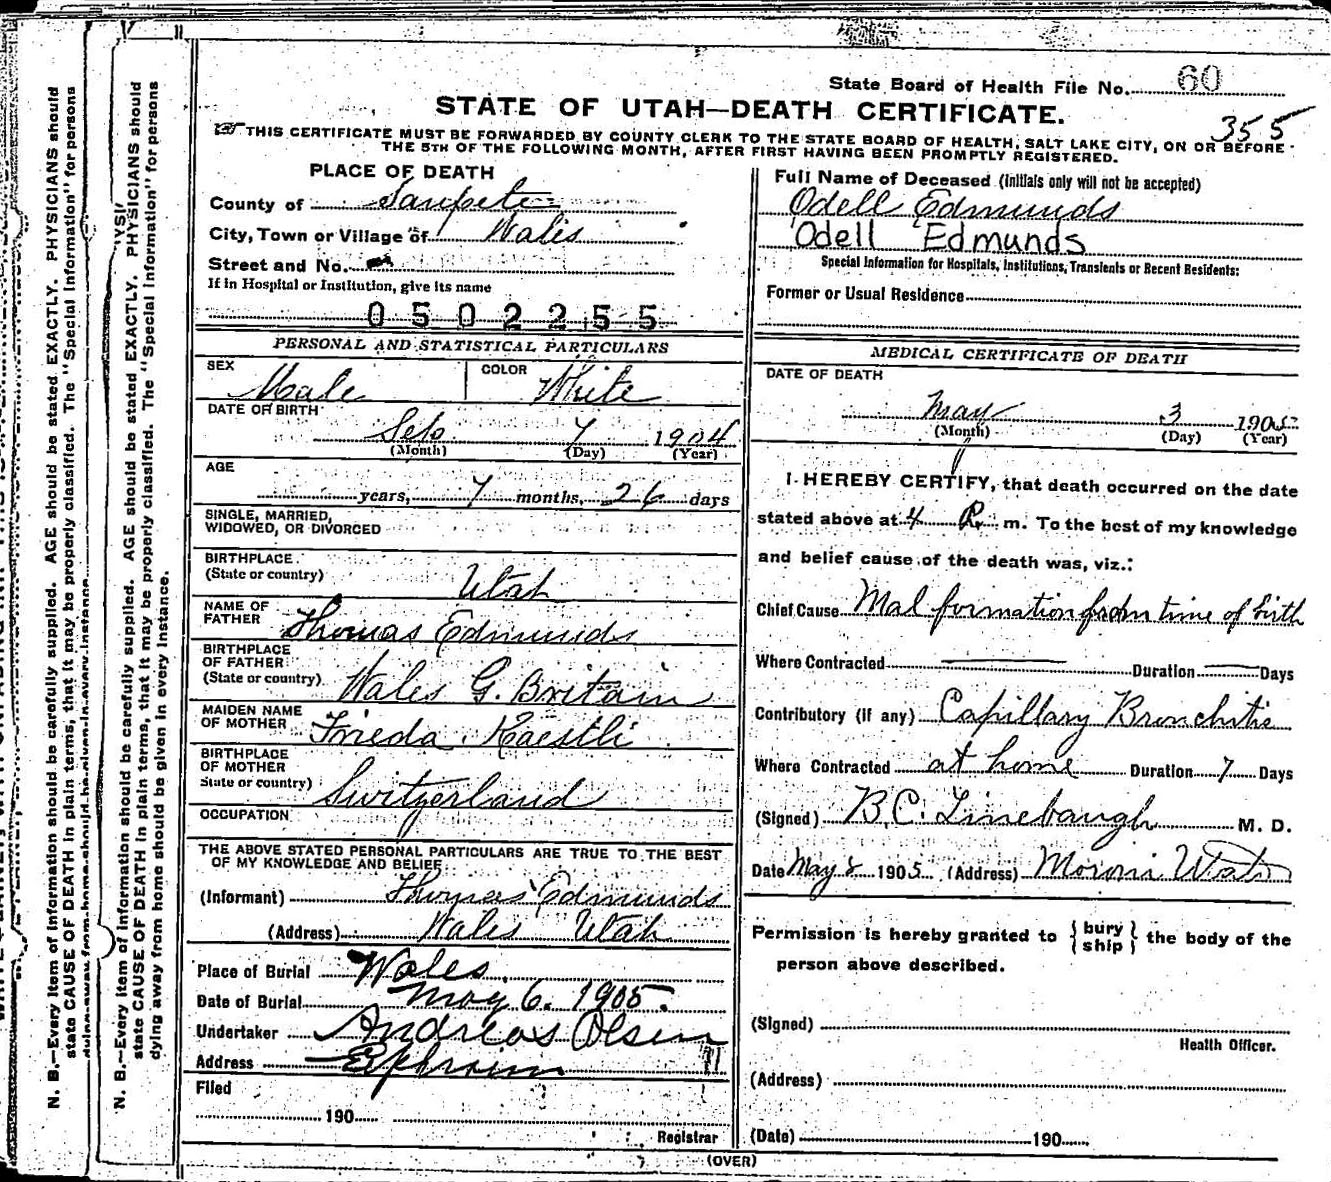 State Board of Health File No. 60
STATE OF UTAH—DEATH CERTIFICATE.
355
THIS CERTIFICATE MUST BE FORWARDED BY COUNTY CLERK TO THE STATE BOARD OF HEALTH, SALT LAKE CITY, ON OR BEFORE
THE 5TH OF THE FOLLOWING MONTH, AFTER FIRST HAVING BEEN PROMPTLY REGISTERED.
PLACE OF DEATH
County of Sanpete
City, Town or Village of Wales
Street and No.
If in Hospital or Institution, give its name
0502255
Full Name of Deceased (Initials only will not be accepted)
Odell Edmunds
Odell Edmunds
Special Information for Hospitals, Institutions, Transients or Recent Residents:
Former or Usual Residence
PERSONAL AND STATISTICAL PARTICULARS
SEX Male COLOR White
DATE OF BIRTH
Sep 7 1904
(Month) (Day) (Year)
AGE
years, 7 months, 26 days
SINGLE, MARRIED,
WIDOWED, OR DIVORCED
BIRTHPLACE
(State or country) Utah
NAME OF
FATHER Thomas Edmunds
BIRTHPLACE
OF FATHER
(State or country) Wales G. Britain
MAIDEN NAME
OF MOTHER Frieda Kaestli
BIRTHPLACE
OF MOTHER
State or country) Switzerland
OCCUPATION
THE ABOVE STATED PERSONAL PARTICULARS ARE TRUE TO THE BEST
OF MY KNOWLEDGE AND BELIEF
(Informant) Thomas Edmunds
(Address) Wales Utah
Place of Burial Wales
Date of Burial May 6. 1905.
Undertaker Andreas Olsen
Address Ephraim
Filed
190
Registrar
MEDICAL CERTIFICATE OF DEATH
DATE OF DEATH
May 3 1905
(Month) (Day) (Year)
I HEREBY CERTIFY, that death occurred on the date
stated above at 4 P. m. To the best of my knowledge
and belief cause of the death was, viz.:
Chief Cause Mal formation from time of birth
Where Contracted Duration Days
Contributory (if any) Capillary Bronchitis
Where Contracted at home Duration 7 Days
(Signed) B.C. Linebaugh M. D.
Date May 8 1905 (Address) Moroni Utah
Permission is hereby granted to {bury
ship} the body of the
person above described.
(Signed)
Health Officer.
(Address)
(Date) 190
(OVER)
N. B.—Every item of information should be carefully supplied. AGE should be stated EXACTLY. PHYSICIANS should
state CAUSE OF DEATH in plain terms, that it may be properly classified. The "Special Information" for persons
dying away from home should be given in every instance.
N. B.—Every item of information should be carefully supplied. AGE should be stated EXACTLY. PHYSICIANS should
state CAUSE OF DEATH in plain terms, that it may be properly classified. The "Special Information" for persons
dying away from home should be given in every instance.